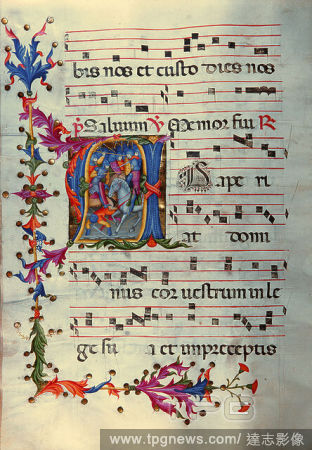 bis nos et custo dies nos
ps Saluum V Memor fui R
A Dape ri
at domi
nus cor uestrum in le
ge su a et in preceptis
www.tpgnews.com/ 達志影像